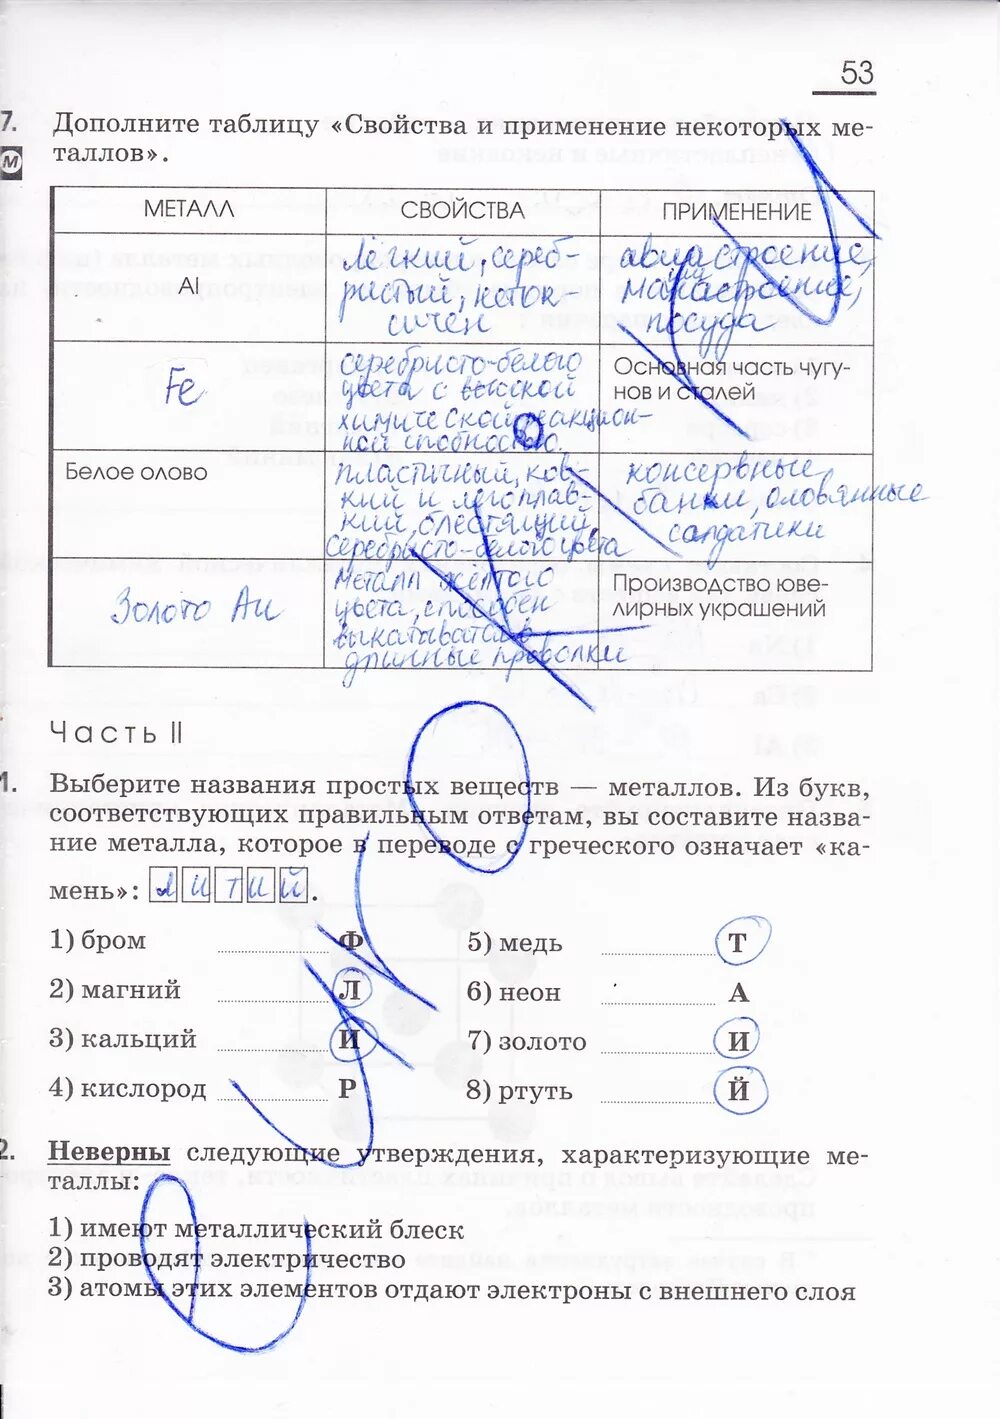 53
7. Дополните таблицу «Свойства и применение некоторых ме-
М таллов».
МЕТАЛЛ СВОЙСТВА ПРИМЕНЕНИЕ
Al
лёгкий, сереб-
ристый, неток-
сичен
авиастроение,
машиностроение,
посуда
Fe
серебристо-белого
цвета с высокой
химической реакцион-
ной способностью.
Основная часть чугу-
нов и сталей
Белое олово
пластичный, ков-
кий и легоплав-
кий, блестящий,
серебристо-белого цвета
консервные
банки, оловянные
солдатики
Золото Au
металл жёлтого
цвета, способен
выкатываться в
длинные проволки
Производство юве-
лирных украшений
Часть II
1. Выберите названия простых веществ — металлов. Из букв,
соответствующих правильным ответам, вы составите назва-
ние металла, которое в переводе с греческого означает «ка-
мень»: литий.
1) бром Ф
2) магний Л
3) кальций И
4) кислород Р
5) медь Т
6) неон А
7) золото И
8) ртуть Й
2. Неверны следующие утверждения, характеризующие ме-
таллы:
1) имеют металлический блеск
2) проводят электричество
3) атомы этих элементов отдают электроны с внешнего слоя